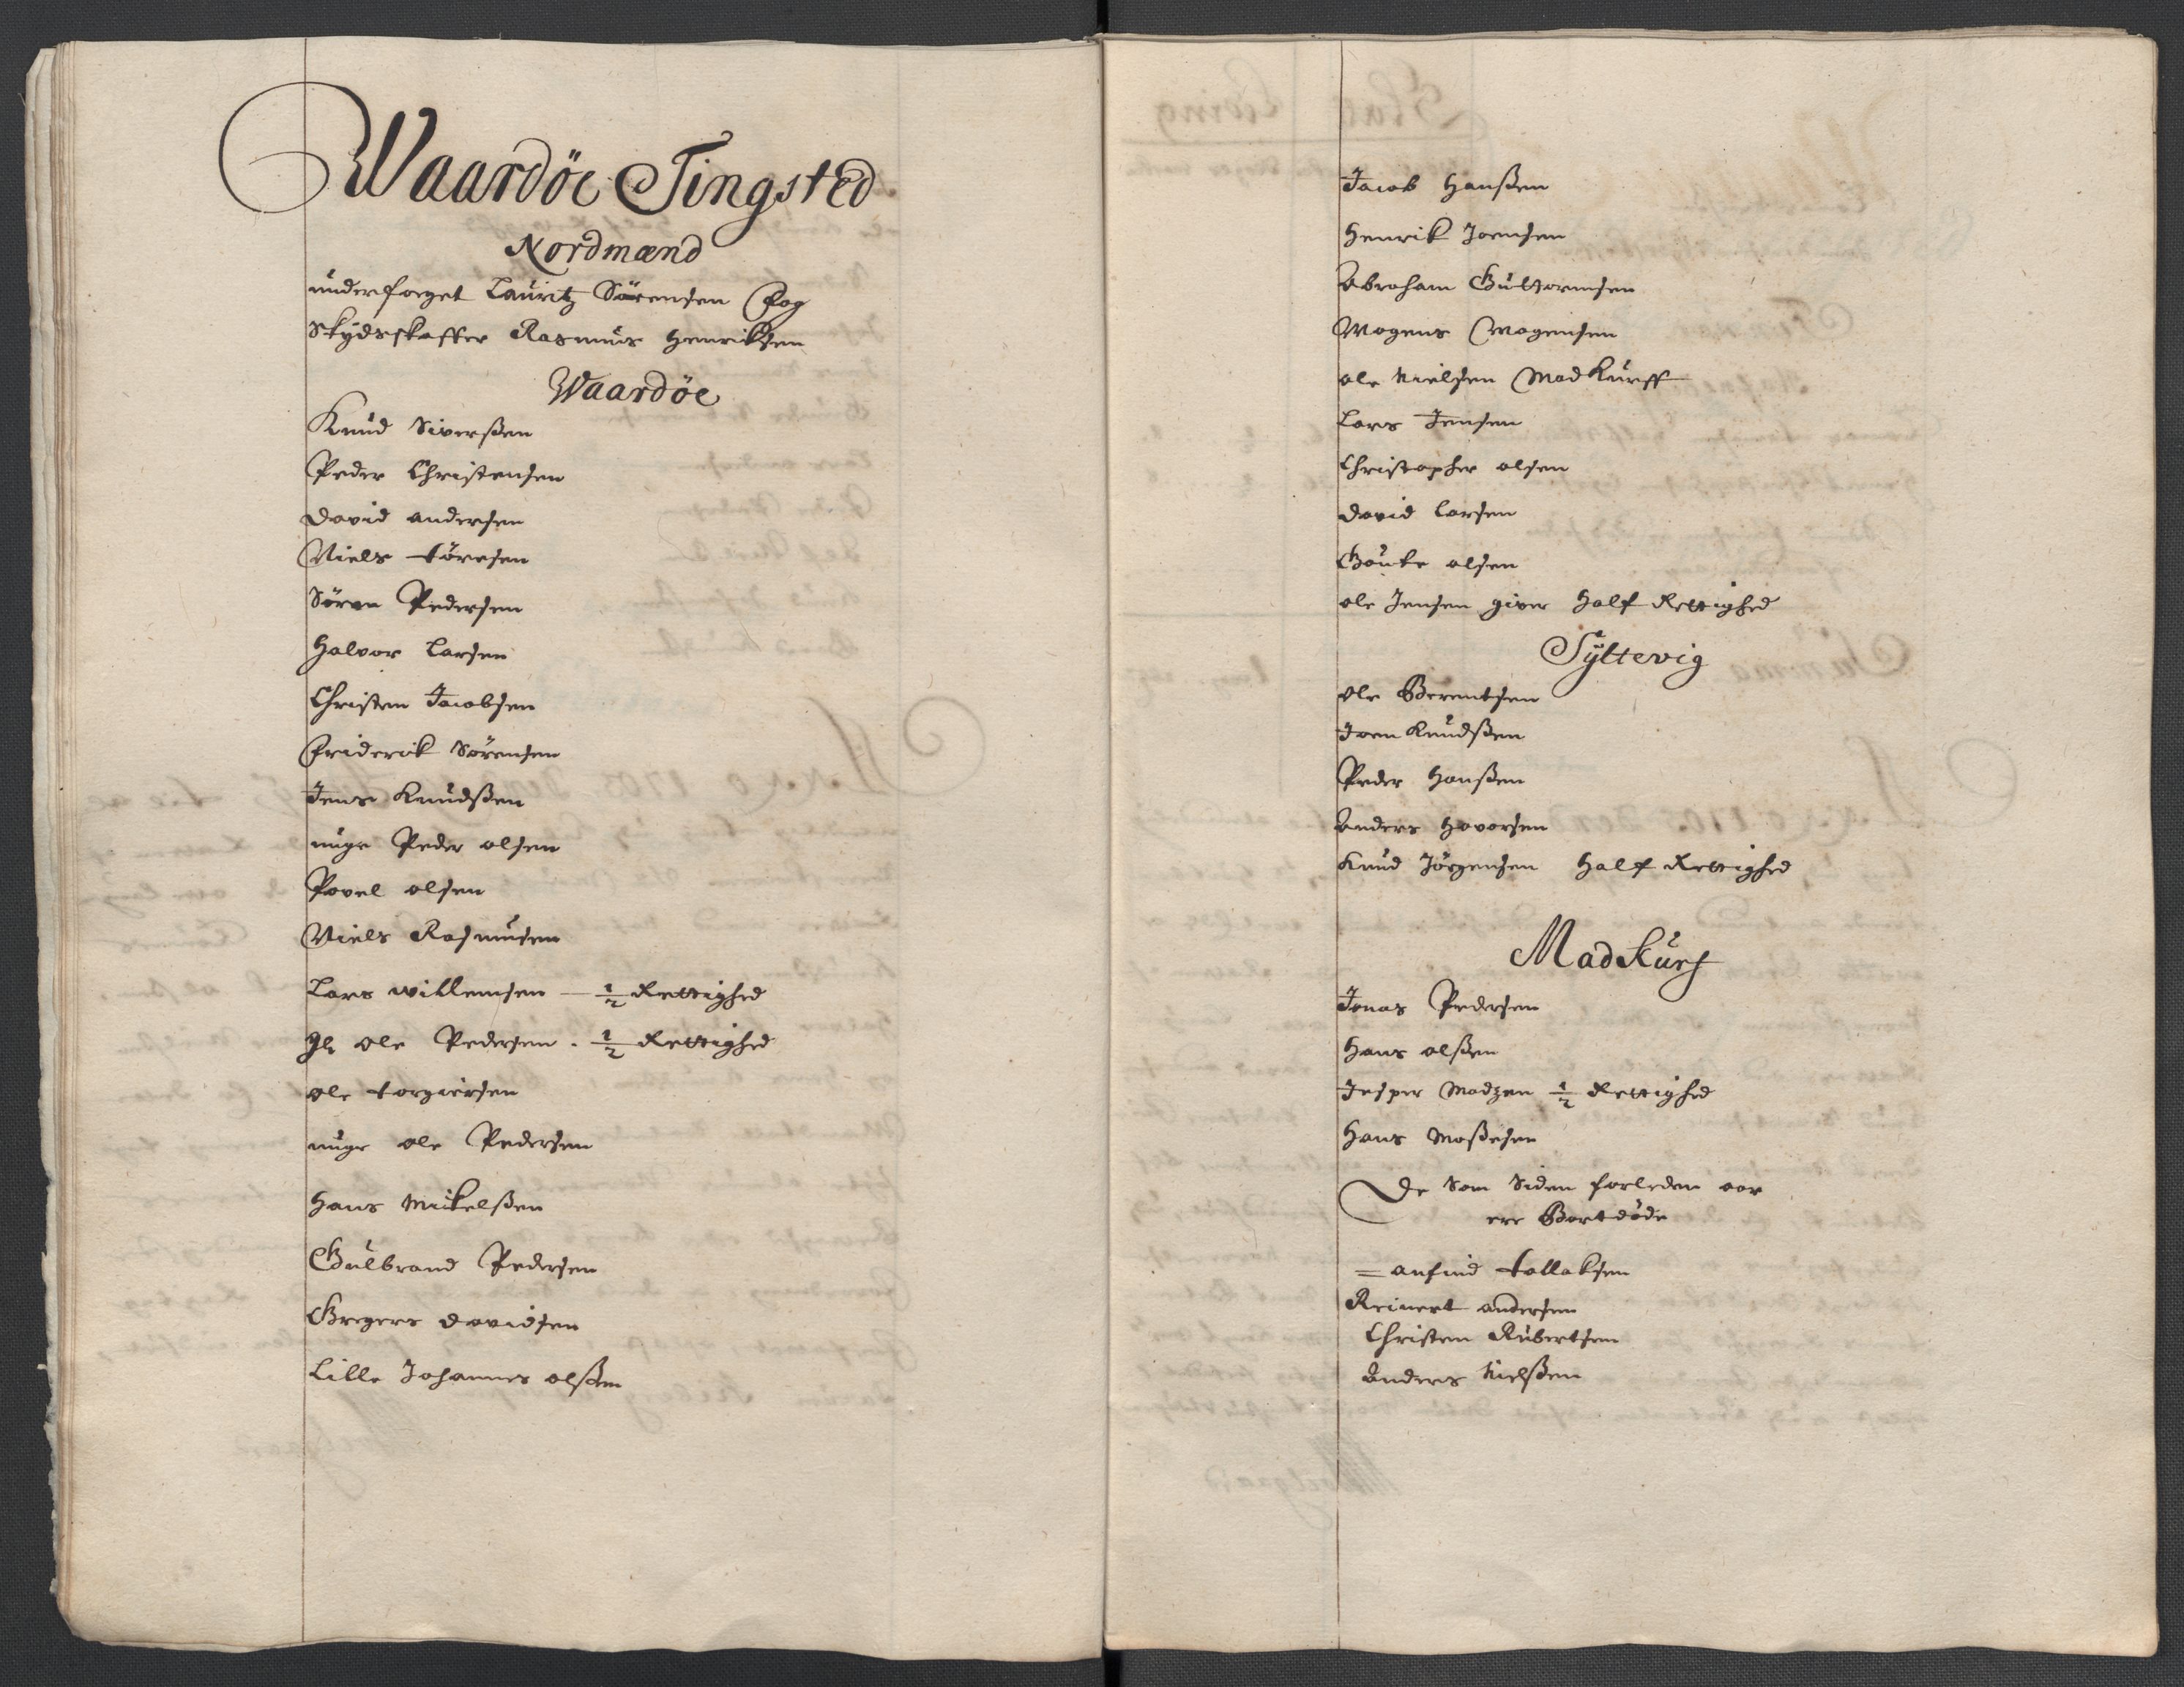 Waardöe Tingsted
Nordmænd
underfoeget Lauritz Sörensen Fog
Skydsskaffer Rasmus Henriksen
Waardöe
Knud Siverßen
Peder Christensen
David andersen
Niels töresen
Sören Pedersen
Halvor Larsen
Christen Jacobsen
Friderik Sörensen
Jens Knudßen
unge Peder olsen
Povel olsen
Niels Rasmusen
Lars willemsen — 1/2 Rettighed
Gl Ole Pedersen . 1/2 Rettighed
Ole torgiersen
unge ole Pedersen
Hans Mikelßen
Gulbrand Pedersen
Gregers Davidsen
Lille Johannes olßen
Jacob Hanßen
Henrik Joensen
Abraham Guttormsen
Mogens Mogensen
ole Nielsen Madkurff
Lars Jensen
Christopher olsen
David Larsen
Goute olsen
ole Jensen giver Half Rettighed
Syltevig
Ole Berentsen
Joen Knudßen
Peder Hanßen
Anders Havorsen
Knud Jörgensen Half Rettighed
Madkurf
Jonas Pedersen
Hans olßen
Jesper Madzen 1/2 Rettighed
Hans Moßesen
De Som Siden forleden aar
ere Bortdöde
= anfind tollaksen
Reinert andersen
Christen Rubertsen
Anders Nielßen